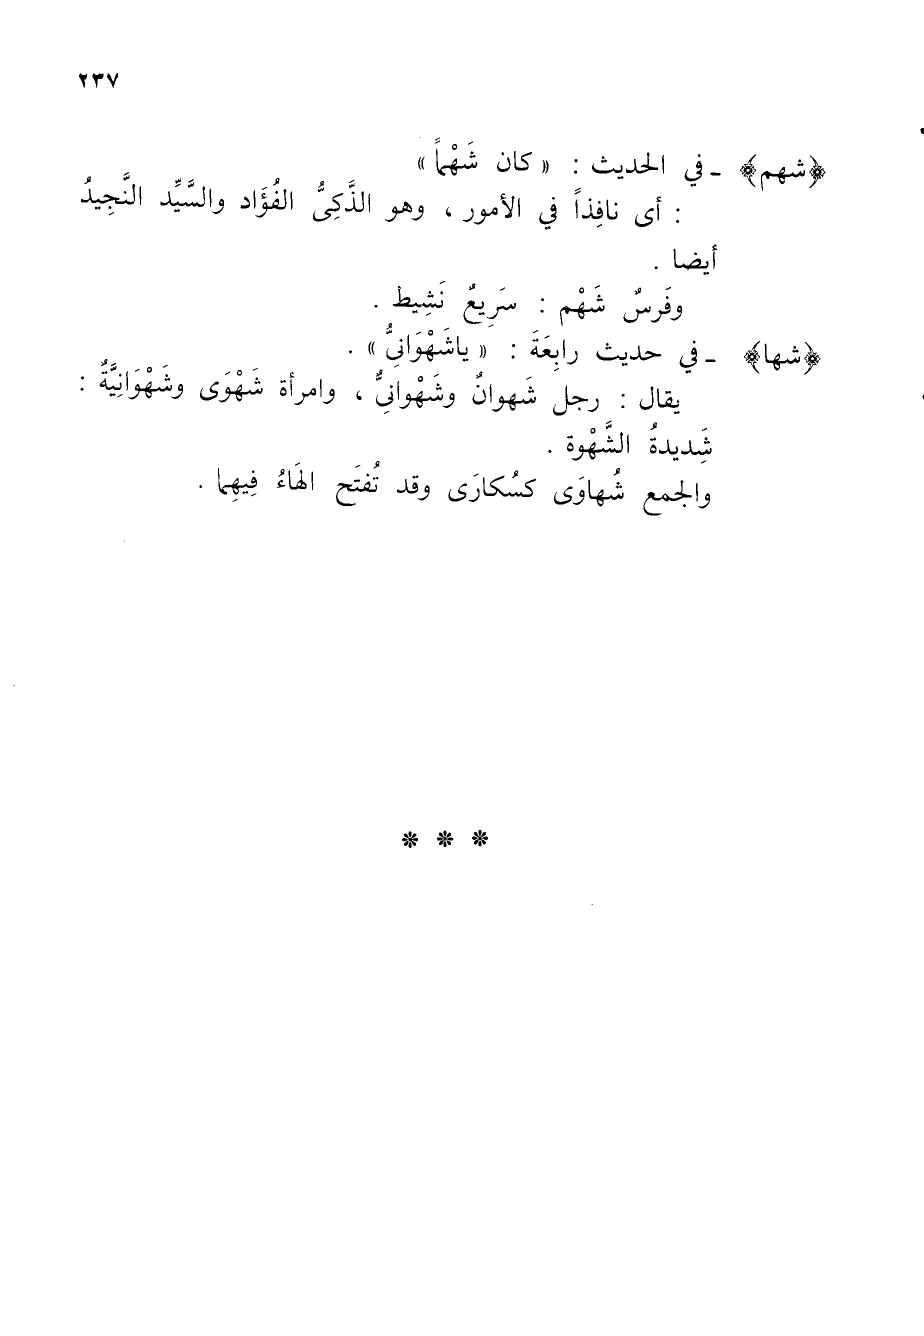 ٢٣٧
﴿شهم﴾ ـ في الحديث : « كان شَهْماً »
: أى نافِذاً في الأمور ، وهو الذَّكِىُّ الفُؤَاد والسَّيِّد النَّجِيدُ
أيضا .
وفَرسٌ شَهْم : سَرِيعٌ نَشِيط .
﴿شها﴾ ـ في حديث رابِعَةَ : « ياشَهْوَانِىُّ » .
يقال : رجل شَهوانٌ وشَهْوانِىٌّ ، وامرأة شَهْوَى وشَهْوَانِيَّةٌ :
شَدِيدةُ الشَّهْوة .
والجمع شُهاوَى كسُكارَى وقد تُفتَح الهَاءُ فِيهِما .
* * *